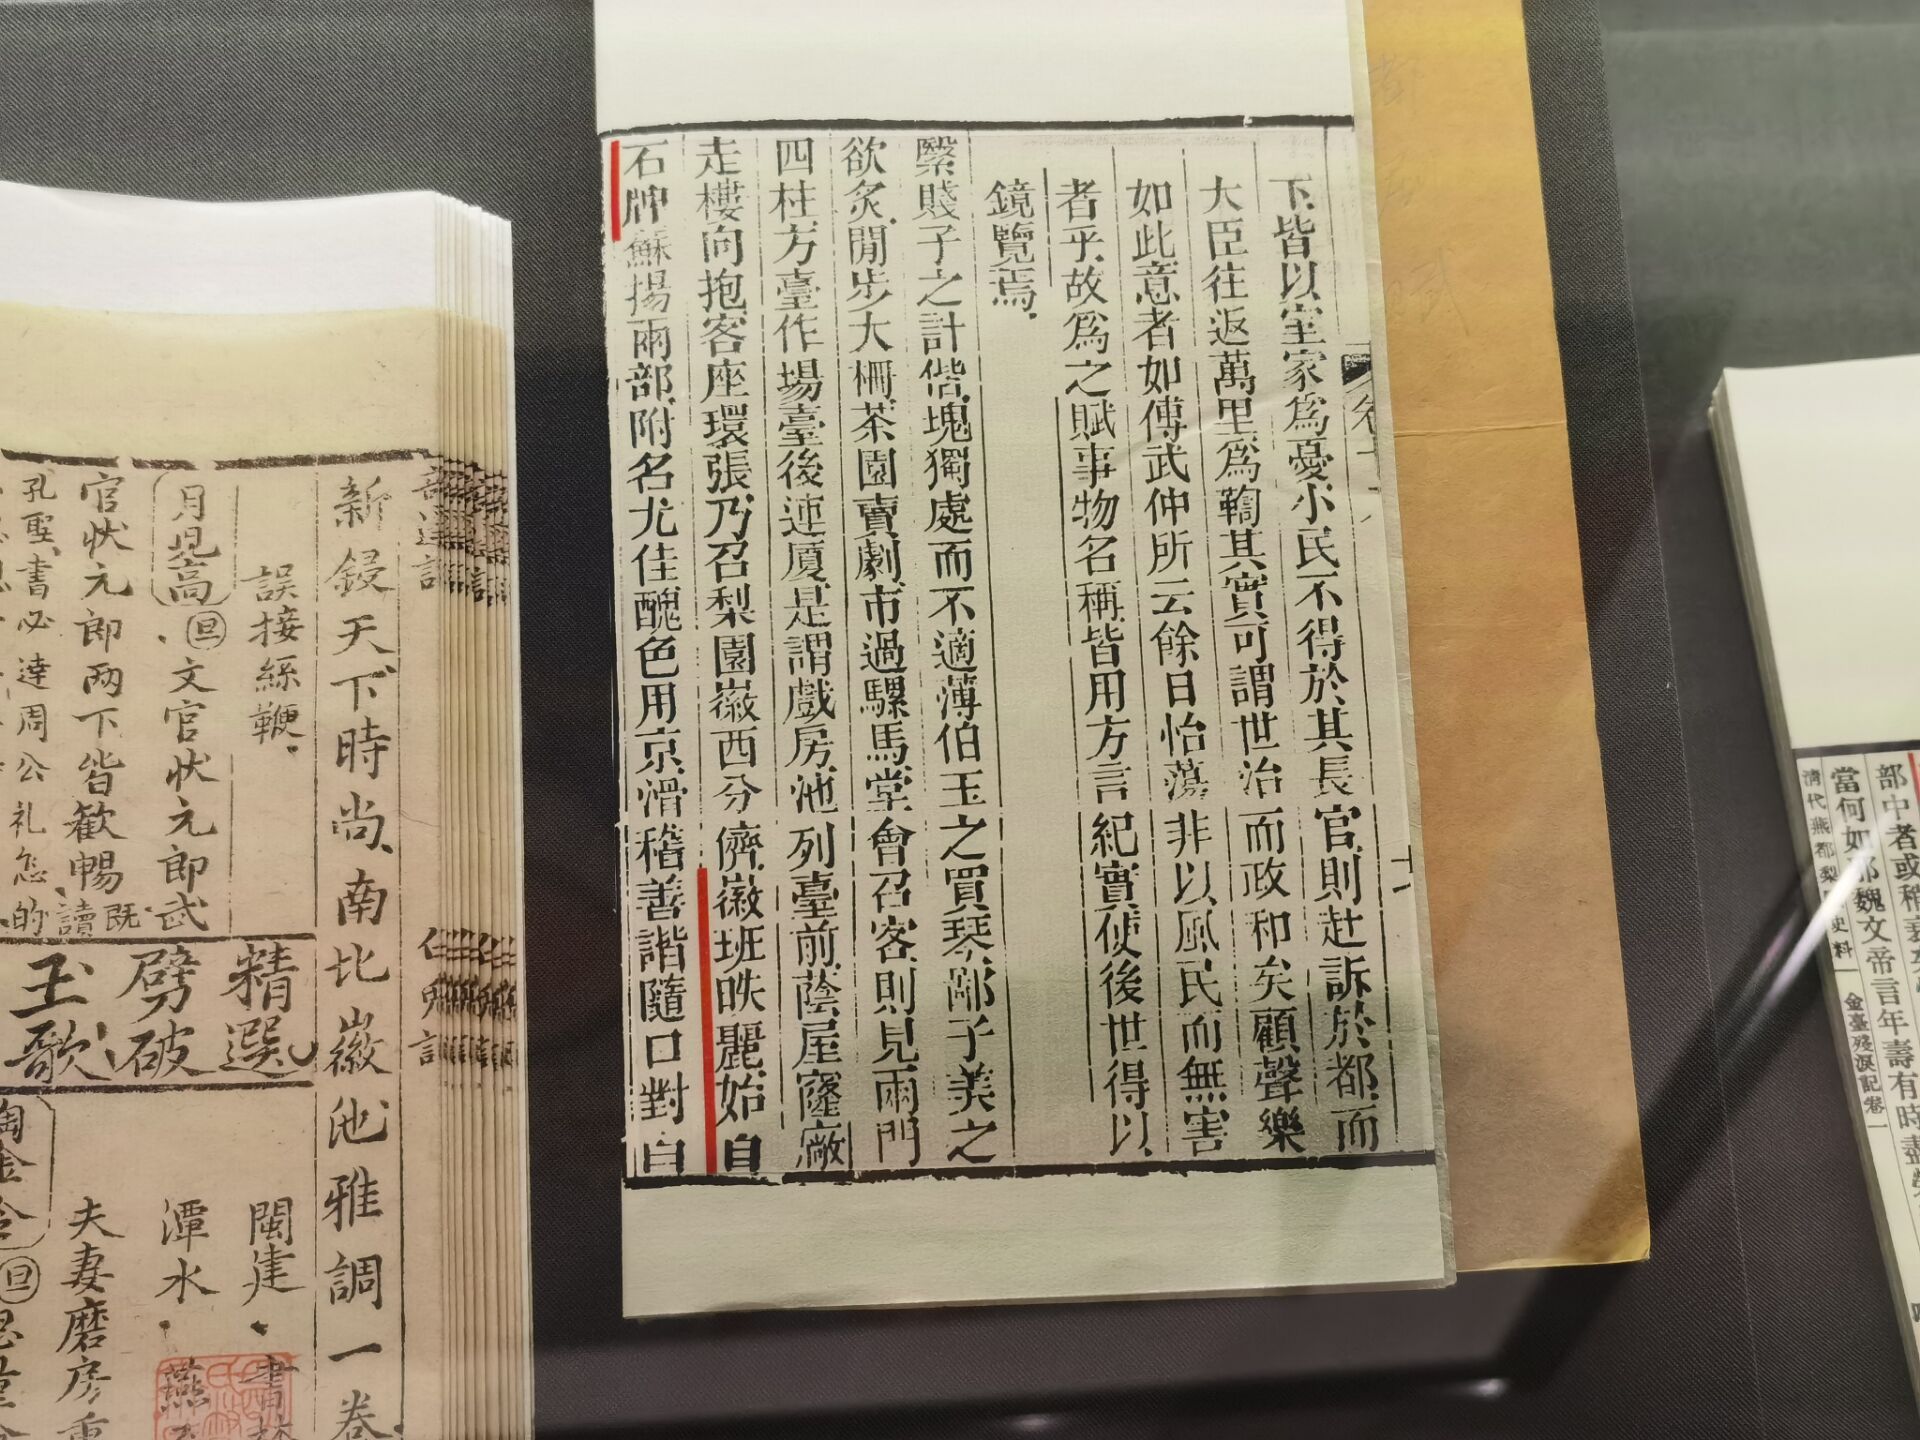 下皆以室家為憂小民不得於其長官則赴訴於都而
大臣往返萬里為鞫其實可謂世治而政和矣顧聲樂
如此意者如傅武仲所云餘日怡蕩非以風民而無害
者乎故為之賦事物名稱皆用方言紀實使後世得以
鏡覽焉
繄賤子之計偕塊獨處而不適薄伯玉之買琴鄙子美之
欲炙閒步大柵茶園賣劇市過騾馬堂會召客則見兩門
四柱方臺作場臺後連厦是謂戲房池列臺前蔭屋窿廠
走樓向抱客座環張乃召梨園嶶西分儕嶶班昳麗始自
石牌蘇揚兩部附名尤佳醜色用京滑稽善諧隨口對白
新鋟天下時尚南北嶶池雅調一卷
誤接絲鞭
月見高
旦
文官狀元郎武
官狀元郎兩下皆歡暢讀既
孔聖書必達周公礼怎的
精選
劈破
玉歌
閩建
書林
潭水
燕
夫妻磨房重
旦
當何如耶魏文帝言年壽有時盡
清代燕都梨園史料
金臺殘淚記卷一